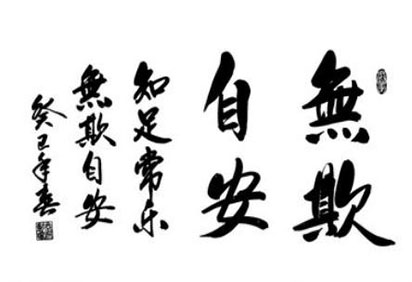 無欺
自安
知足常乐
無欺自安
癸巳年春